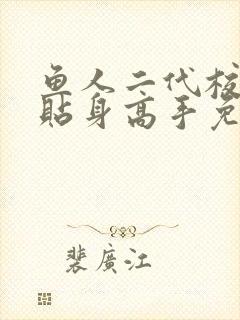 鱼人二代校
贴身高手免
裴廣江